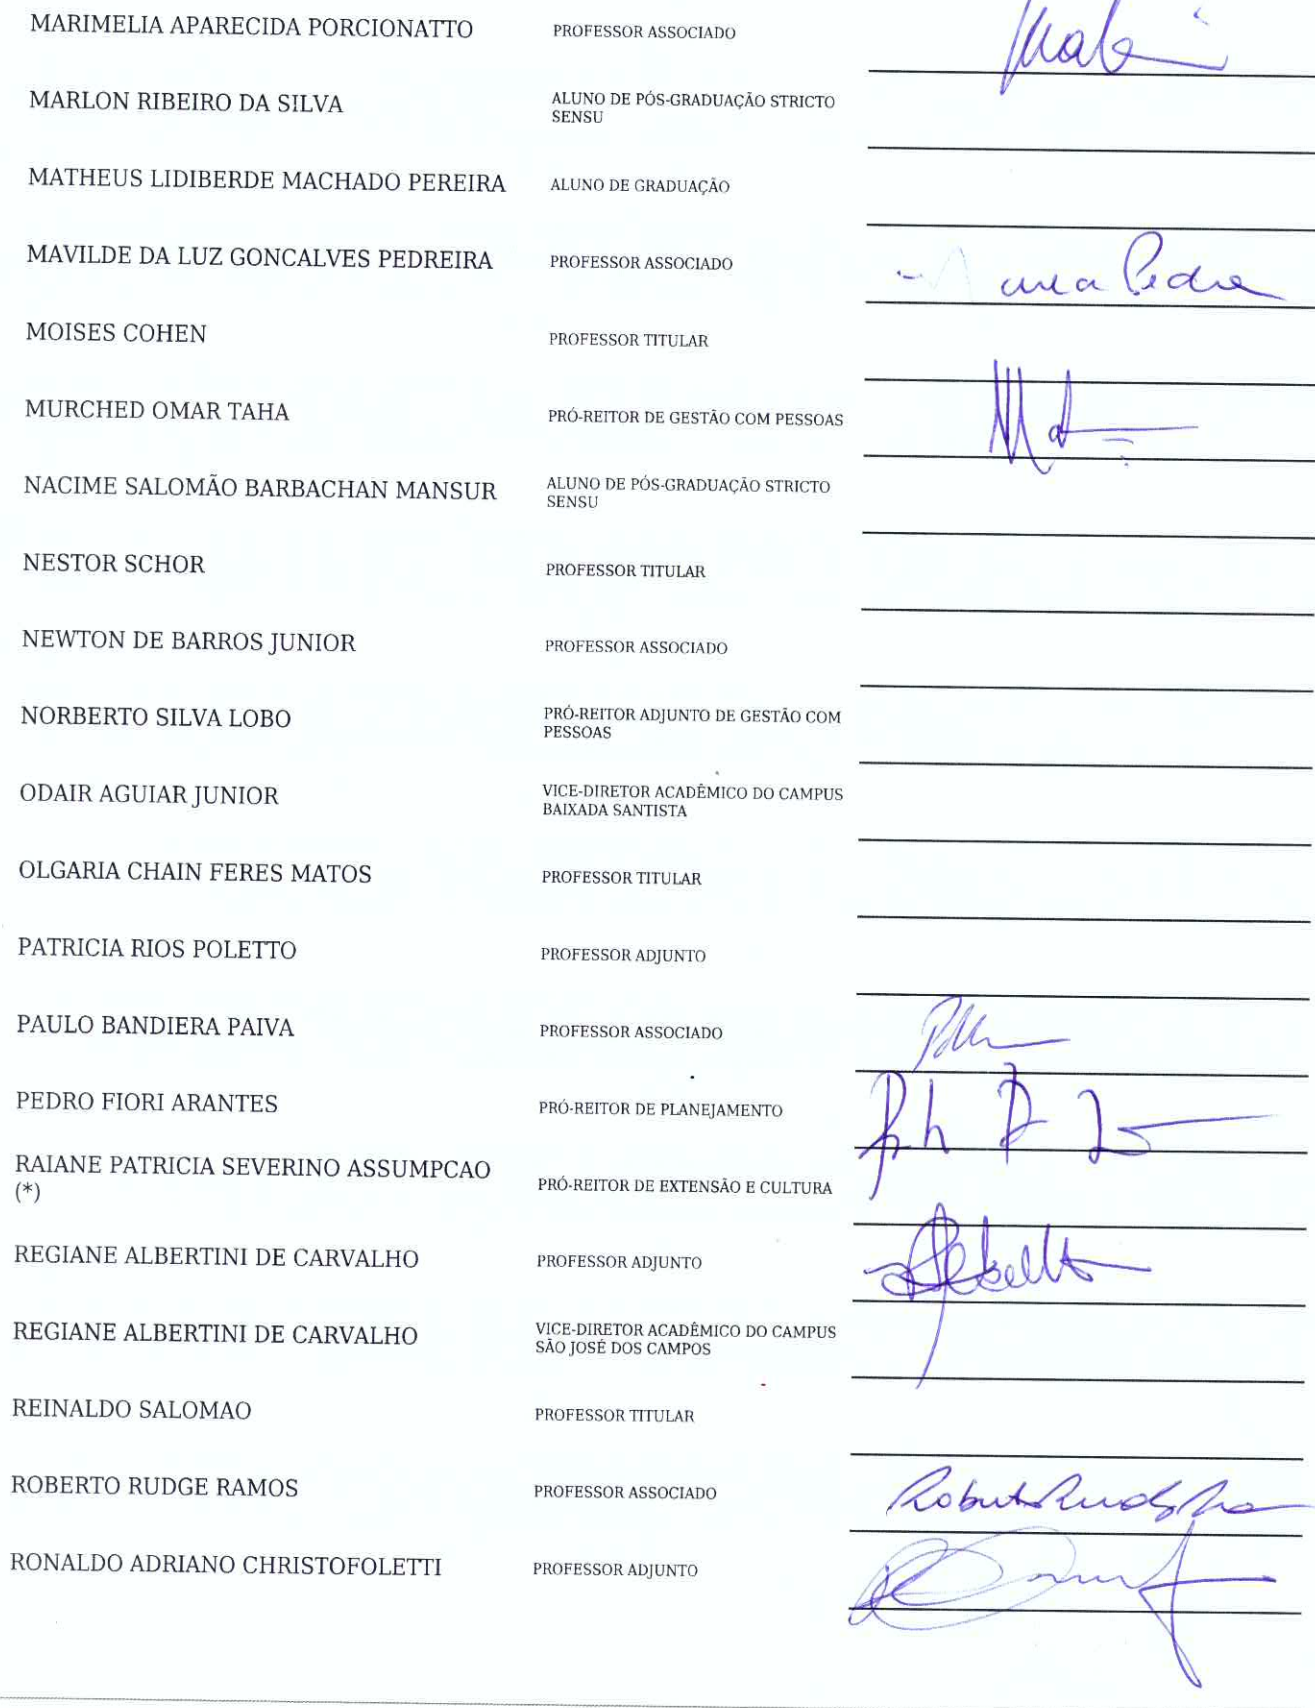 MARIMELIA APARECIDA PORCIONATTO PROFESSOR ASSOCIADO
MARLON RIBEIRO DA SILVA ALUNO DE PÓS-GRADUAÇÃO STRICTO
SENSU
MATHEUS LIDIBERDE MACHADO PEREIRA ALUNO DE GRADUAÇÃO
MAVILDE DA LUZ GONCALVES PEDREIRA PROFESSOR ASSOCIADO
MOISES COHEN PROFESSOR TITULAR
MURCHED OMAR TAHA PRÓ-REITOR DE GESTÃO COM PESSOAS
NACIME SALOMÃO BARBACHAN MANSUR ALUNO DE PÓS-GRADUAÇÃO STRICTO
SENSU
NESTOR SCHOR PROFESSOR TITULAR
NEWTON DE BARROS JUNIOR PROFESSOR ASSOCIADO
NORBERTO SILVA LOBO PRÓ-REITOR ADJUNTO DE GESTÃO COM
PESSOAS
ODAIR AGUIAR JUNIOR VICE-DIRETOR ACADÊMICO DO CAMPUS
BAIXADA SANTISTA
OLGARIA CHAIN FERES MATOS PROFESSOR TITULAR
PATRICIA RIOS POLETTO PROFESSOR ADJUNTO
PAULO BANDIERA PAIVA PROFESSOR ASSOCIADO
PEDRO FIORI ARANTES PRÓ-REITOR DE PLANEJAMENTO
RAIANE PATRICIA SEVERINO ASSUMPCAO
(*) PRÓ-REITOR DE EXTENSÃO E CULTURA
REGIANE ALBERTINI DE CARVALHO PROFESSOR ADJUNTO
REGIANE ALBERTINI DE CARVALHO VICE-DIRETOR ACADÊMICO DO CAMPUS
SÃO JOSÉ DOS CAMPOS
REINALDO SALOMAO PROFESSOR TITULAR
ROBERTO RUDGE RAMOS PROFESSOR ASSOCIADO
RONALDO ADRIANO CHRISTOFOLETTI PROFESSOR ADJUNTO